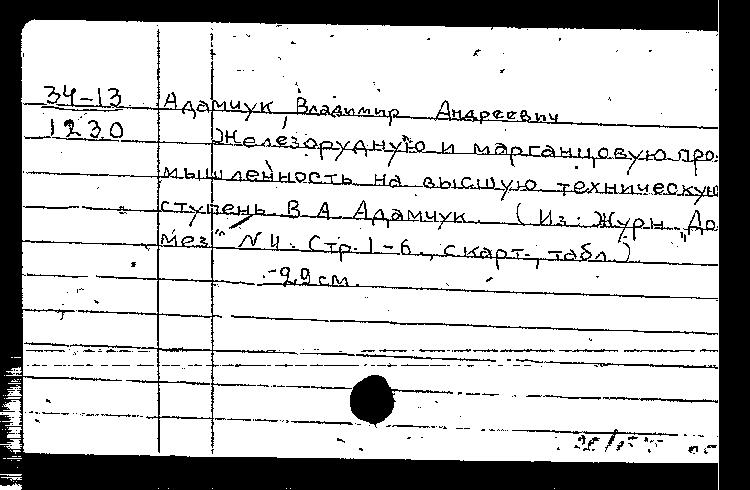 34-13 Адамчук, Владимир Андреевич
1230 Железорудную и марганцовую про-
мышленность на высшую техническую
ступень. В А Адамчук. (Из: Журн „До
мез" № 4. Стр. 1-6., с карт., табл.)
-29 см.